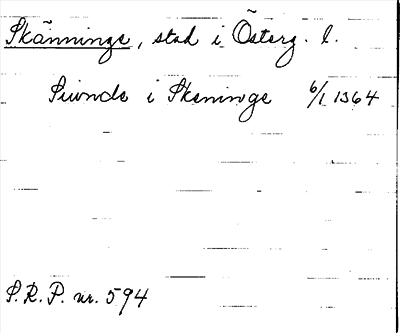 Skänninge, stad i Österg. l.
i Skeninge 6/1 1364
S.R.P. nr. 594